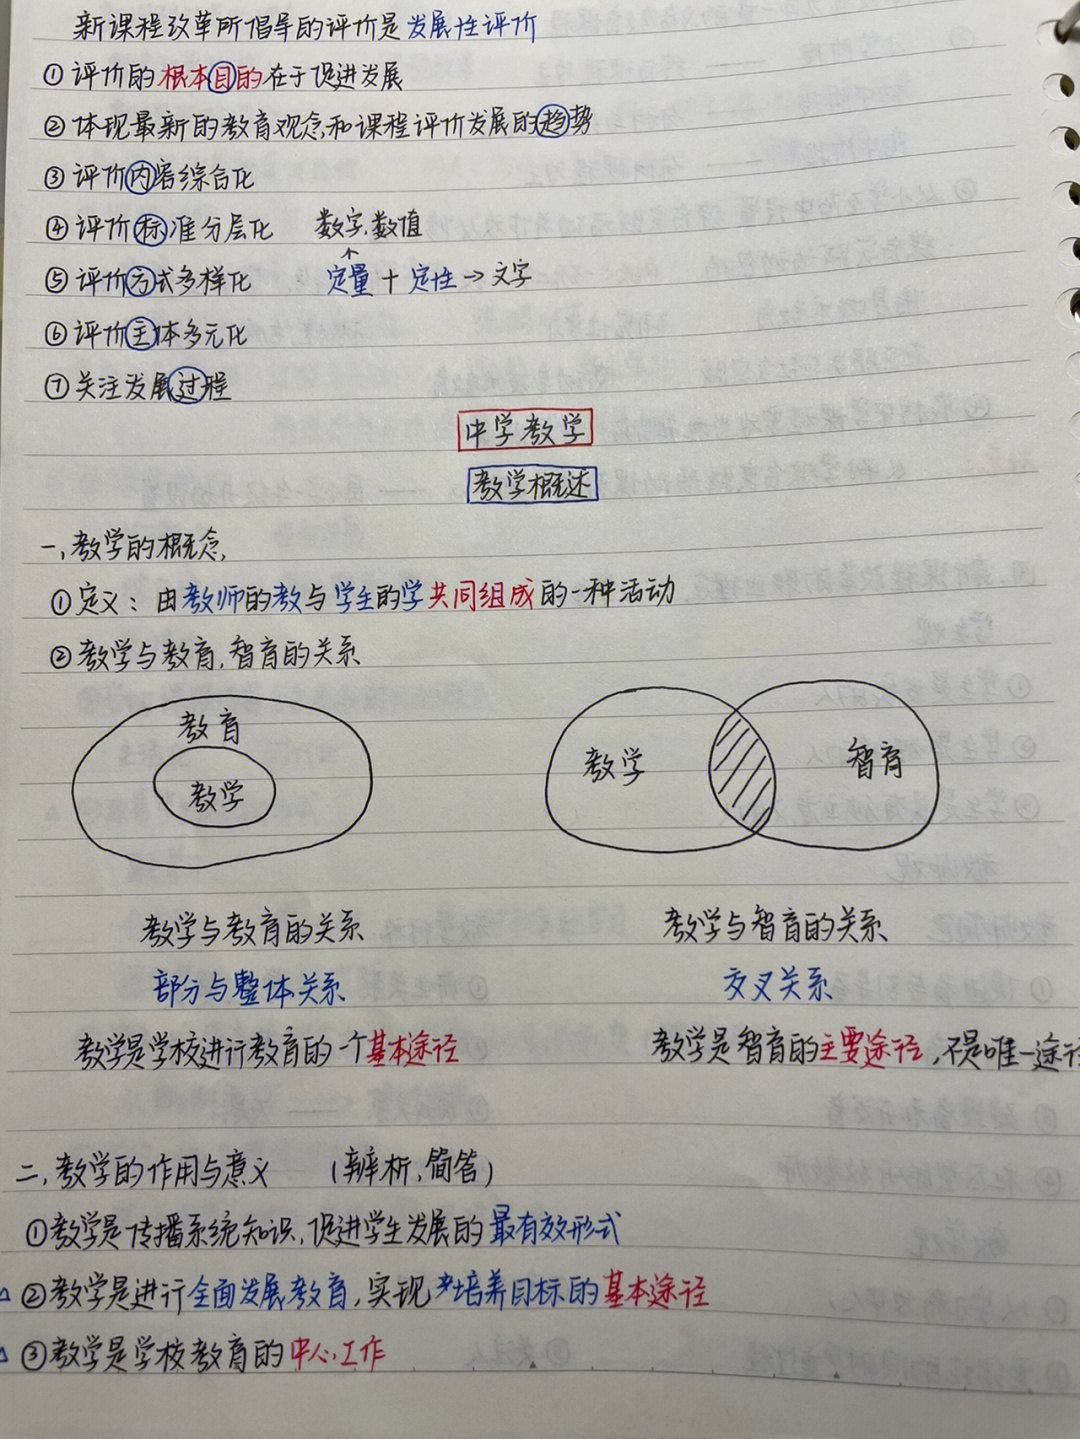 新课程改革所倡导的评价是发展性评价
①评价的根本目的在于促进发展
②体现最新的教育观念和课程评价发展的趋势
③评价内容综合化
④评价标准分层化 数字,数值
⑤评价方式多样化 定量+定性→文字
⑥评价主体多元化
⑦关注发展过程
中学教学
教学概述
一,教学的概念,
①定义：由教师的教与学生的学共同组成的一种活动
②教学与教育,智育的关系
教育
教学
教学 智育
教学与教育的关系 教学与智育的关系
部分与整体关系 交叉关系
教学是学校进行教育的一个基本途径 教学是智育的主要途径,不是唯一途径
二,教学的作用与意义 (辨析,简答)
①教学是传播系统知识,促进学生发展的最有效形式
△②教学是进行全面发展教育,实现培养目标的基本途径
△③教学是学校教育的中心工作